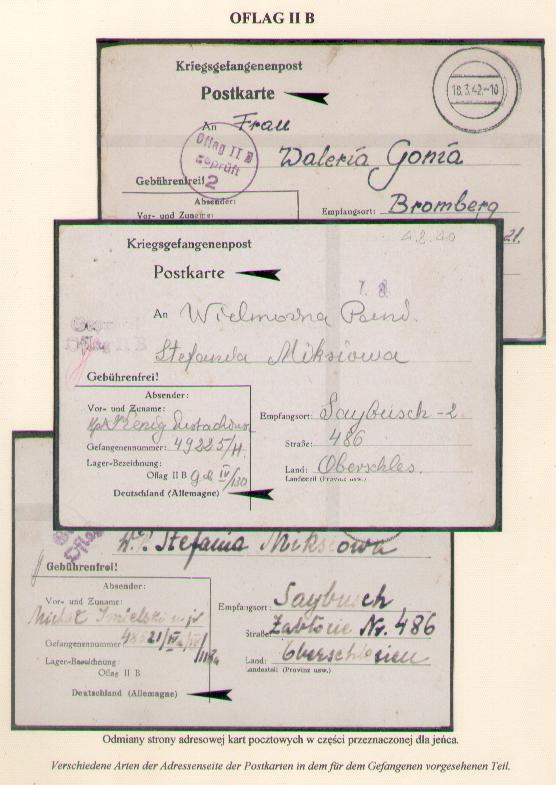 OFLAG II B
Kriegsgefangenenpost
Postkarte
18.3.42.-10
An Frau
Oflag II B
geprüft
2
Waleria Gonia
Gebührenfrei!
Absender:
Vor- und Zuname:
Empfangsort: Bromberg
21.
Kriegsgefangenenpost
4.8.40
Postkarte
7. 8.
An Wielmożna Pani.
Oflag II B
Stefania Miksiowa
Gebührenfrei!
Absender:
Vor- und Zuname:
Empfangsort: Saybusch - 2.
Gefangenennummer: 49225/H.
Straße: 486
Lager-Bezeichnung:
Oflag II B
Land: Oberschles.
Landesteil (Provinz usw.)
Deutschland (Allemagne)
Oflag
W.P. Stefania Miksiowa
Gebührenfrei!
Absender:
Vor- und Zuname:
Empfangsort: Saybusch
Gefangenennummer:
Straße: Zabłocie Nr. 486
Lager-Bezeichnung:
Oflag II B
Land: Oberschlesien
Landesteil (Provinz usw.)
Deutschland (Allemagne)
Odmiany strony adresowej kart pocztowych w części przeznaczonej dla jeńca.
Verschiedene Arten der Adressenseite der Postkarten in dem für dem Gefangenen vorgesehenen Teil.